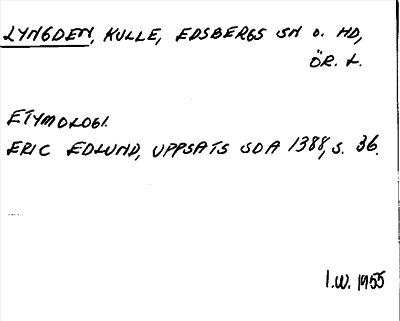 LYNGDEN, KULLE, EDSBERGS SN O. HD,
ÖR. L.
ETYMOLOGI.
ERIC EDLUND, UPPSATS SOA 1388, S. 36.
I.W. 1955